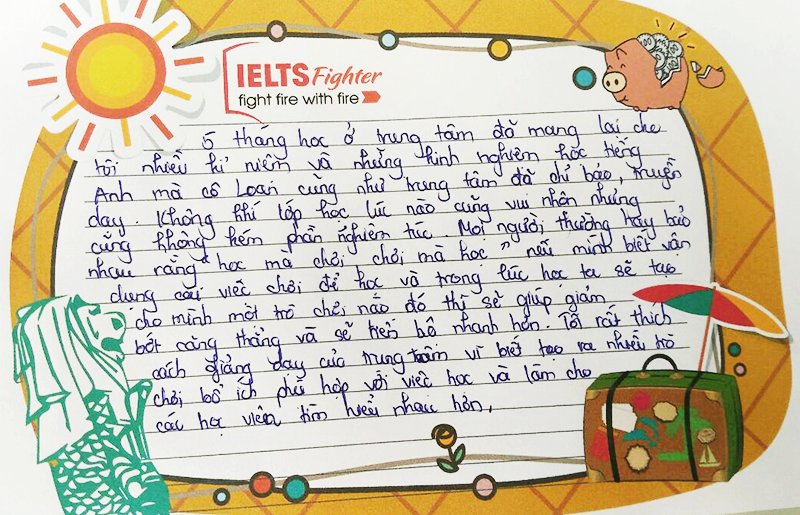 IELTS Fighter
fight fire with fire
5 tháng học ở trung tâm đã mang lại cho
tôi nhiều kỉ niệm và những kinh nghiệm học tiếng
Anh mà cô Loan cũng như trung tâm đã chỉ bảo, truyền
dạy. Không khí lớp học lúc nào cũng vui nhộn nhưng
cũng không kém phần nghiêm túc. Mọi người thường hay bảo
nhau rằng "học mà chơi, chơi mà học" nếu mình biết vận
dụng cái việc chơi để học và trong lúc học ta sẽ tạo
cho mình một trò chơi nào đó thì sẽ giúp giảm
bớt căng thẳng và sẽ tiến bộ nhanh hơn. Tôi rất thích
cách giảng dạy của trung tâm vì biết tạo ra nhiều trò
chơi bổ ích phù hợp với việc học và làm cho
các học viên tìm hiểu nhau hơn.